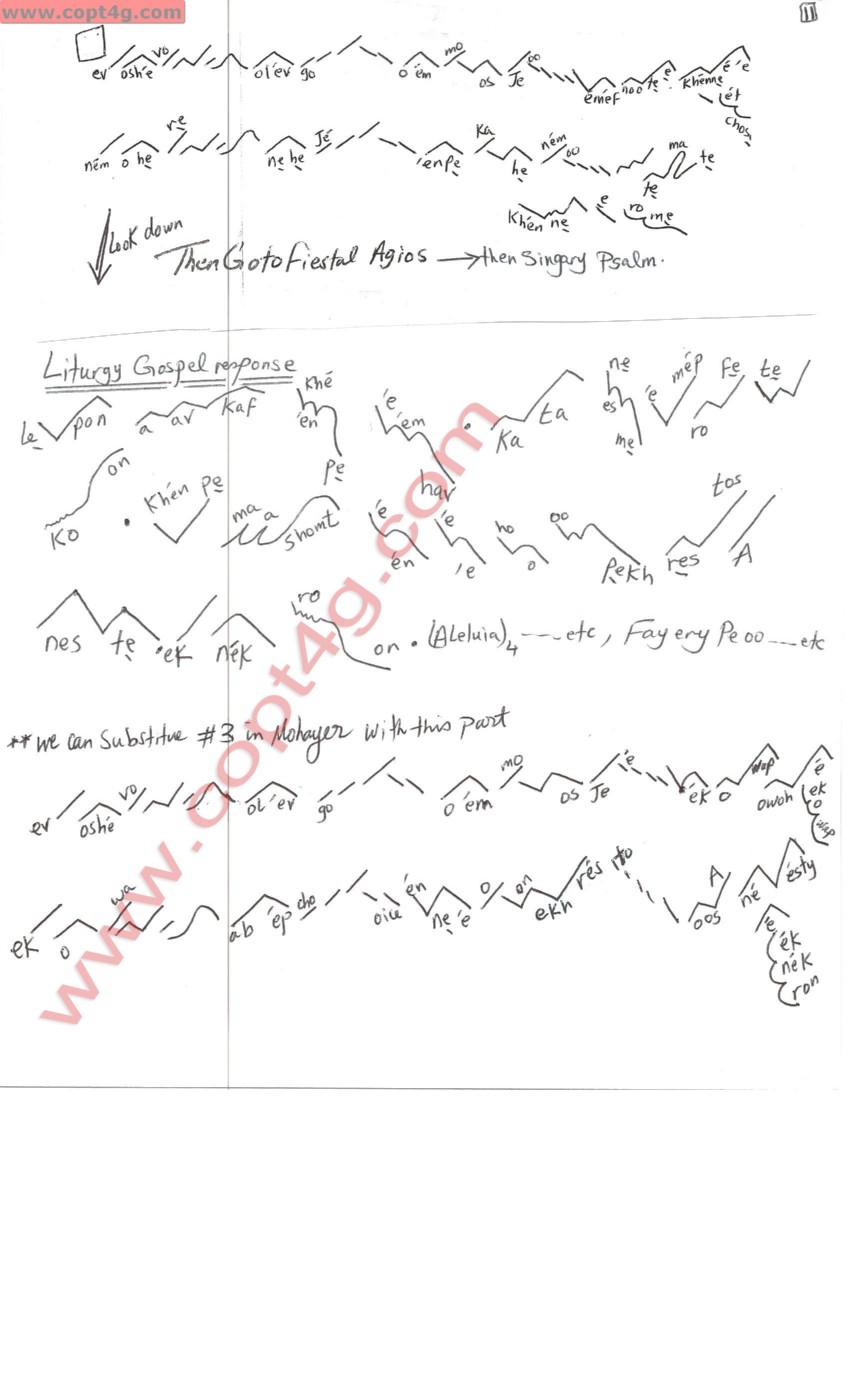 www.copt4g.com
11
ev oshé vo ol'ev go o ém mo os Je oo éméf noo te e khénne é'e
ét
chos
ném o he re ne he Jé 'en pe Ka he ném oo te ma te
Khén ne e ro me
Look down
Then Goto Fiestal Agios → then Singary Psalm.
Liturgy Gospel response
Le pon a av kaf Khé én Pe é ém hav . Ka ta ne es me é mép ro Fe te
Ko on . Khén Pe ma a shomt é én é 'e ho o oo Pekh res tos A
nes te .ek nék ro on . (ALeluia)4 ---- etc, Fay ery Pe oo ---- etc
** we can Substitue #3 in Mohayer with this part
ev oshé vo ol'ev go o'ém mo os Je é ék o owoh é
ek
o
ek o wa ab ép cho én ne'é o on ekh rés to oos A né ésty
é
ék
nék
ron
www.copt4g.com